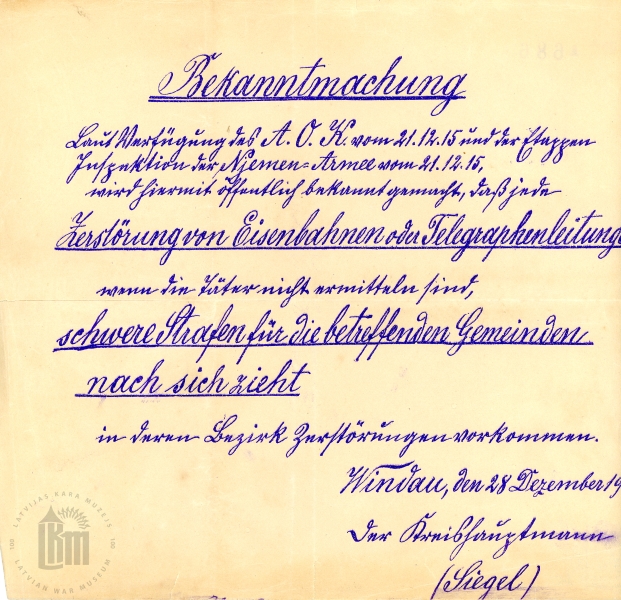 Bekanntmachung
Laut Verfügung des A. O. K. vom 21.12.15 und der Etappen
Inspektion der Njemen-Armee vom 21.12.15,
wird hiermit öffentlich bekannt gemacht, daß jede
Zerstörung von Eisenbahnen oder Telegraphenleitung
wenn die Täter nicht ermitteln sind,
schwere Strafen für die betreffenden Gemeinden
nach sich zieht
in deren Bezirk Zerstörungen vorkommen.
Windau, den 28 Dezember 19
Der Kreishauptmann
(Siegel)
LATVIJAS KARA MUZEJS
100 LKM 100
LATVIAN WAR MUSEUM